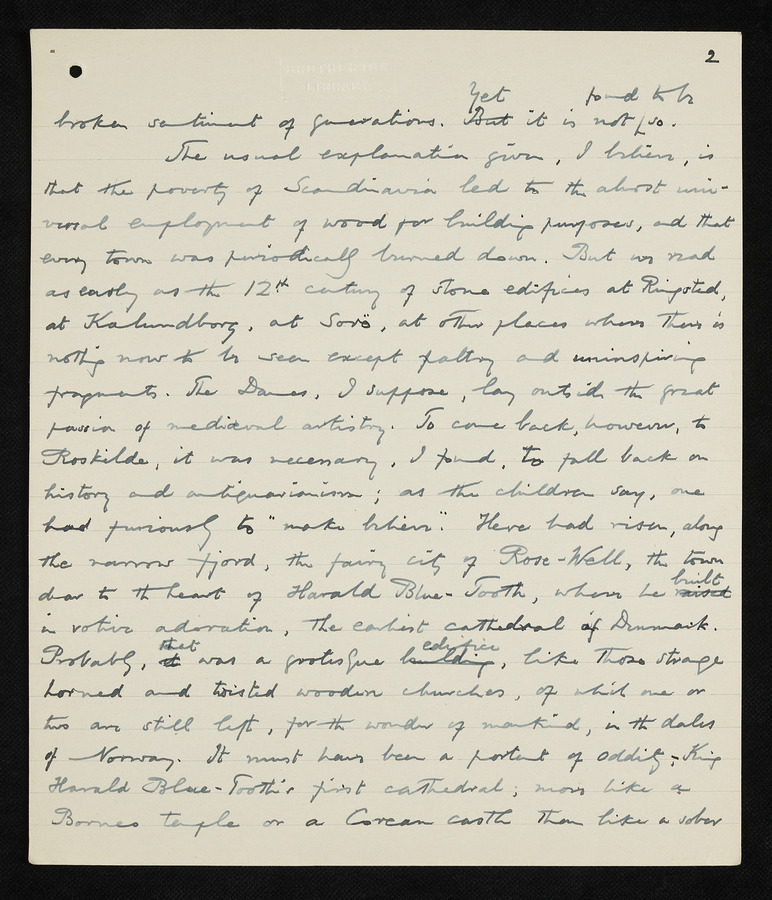 2
Yet found to be
broken sentiment of generations. But it is not so.
The usual explanation given, I believe, is
that the poverty of Scandinavia led to the almost uni-
versal employment of wood for building purposes, and that
every town was periodically burned down. But we read
as early as the 12th century of stone edifices at Ringsted,
at Kalundborg, at Sorö, at other places where there is
nothing now to be seen except paltry and uninspiring
fragments. The Danes, I suppose, lay outside the great
passion of mediæval artistry. To come back, however, to
Roskilde, it was necessary, I found, to fall back on
history and antiquarianism; as the children say, one
had furiously to "make believe". Here had risen, along
the narrow fjord, the fairy city of Rose-Well, the town
built
dear to the heart of Harald Blue-Tooth, where he raised
in votive adoration, the earliest cathedral of Denmark.
that edifice
Probably, it was a grotesque building, like those strange
horned and twisted wooden churches, of which one or
two are still left, for the wonder of mankind, in the dales
of Norway. It must have been a portent of oddity, King
Harald Blue-Tooth's first cathedral; more like a
Borneo temple or a Corean castle than like a sober